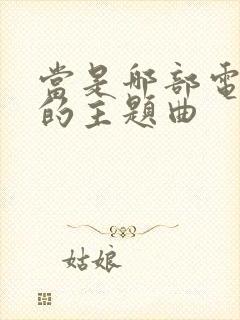 當是哪部電
的主題曲
姑娘